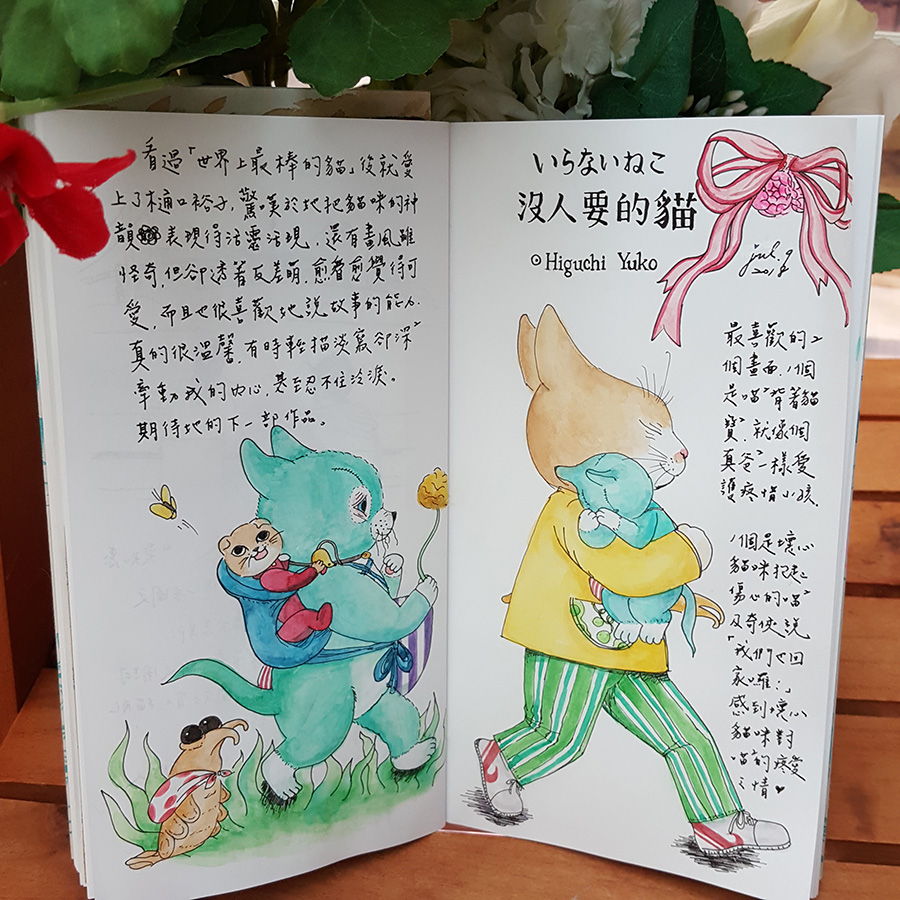 看過「世界上最棒的貓」後就愛
上了樋口裕子,驚嘆於她把貓咪的神
韻表現得活靈活現,還有畫風雖
怪奇,但卻透著反差萌,愈看愈覺得可
愛,而且也很喜歡她說故事的能力,
真的很溫馨,有時輕描淡寫卻深深
牽動我的內心,甚至忍不住泠淚。
期待她的下一部作品。
いらないねこ
沒人要的貓
Higuchi Yuko
jul. 9
2018
最喜歡的2
個畫面,1個
是喵喵背著貓
寶寶,就像個
真爸爸一樣愛
護疼惜小孩.
1個是壞心
貓咪抱起
傷心的喵喵
及奇俠說
「我們也回
家囉!」
感到壞心
貓咪對
喵喵的疼愛
之情♥